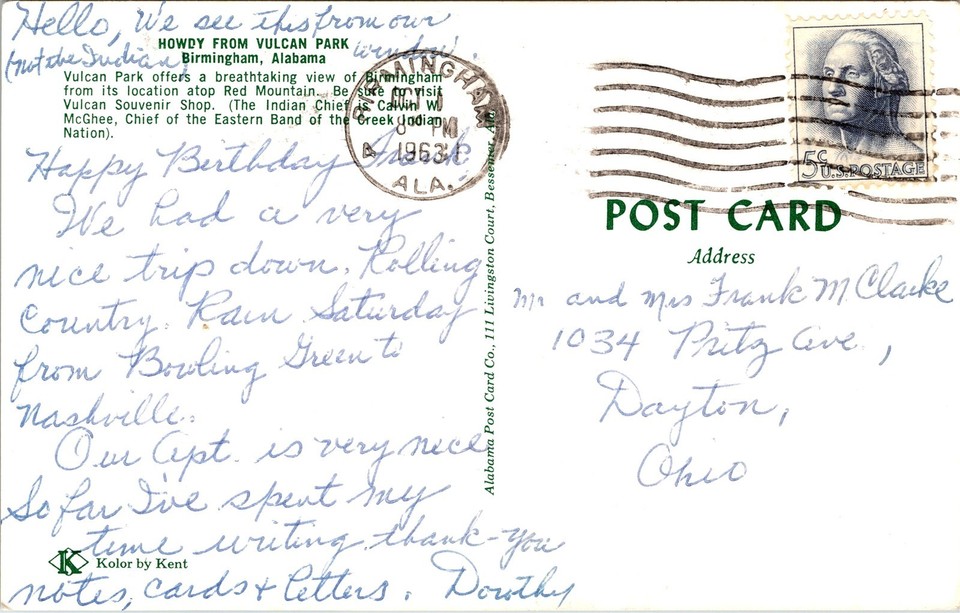 Hello, We see this from our
window.
(not the Indian)
HOWDY FROM VULCAN PARK
Birmingham, Alabama
Vulcan Park offers a breathtaking view of Birmingham
from its location atop Red Mountain. Be sure to visit
Vulcan Souvenir Shop. (The Indian Chief is Calvin W.
McGhee, Chief of the Eastern Band of the Creek Indian
Nation).
Happy Birthday Frank,
We had a very
nice trip down. Rolling
Country. Rain Saturday
from Bowling Green to
Nashville.
Our Apt. is very nice
So far I've spent my
time writing thank-you
notes, cards & letters. Dorothy
Kolor by Kent
Alabama Post Card Co., 111 Livingston Court, Bessemer, Ala.
BIRMINGHAM
PM
1963
ALA.
5c
U.S. POSTAGE
POST CARD
Address
Mr and Mrs Frank M Clarke
1034 Pritz Ave.,
Dayton,
Ohio